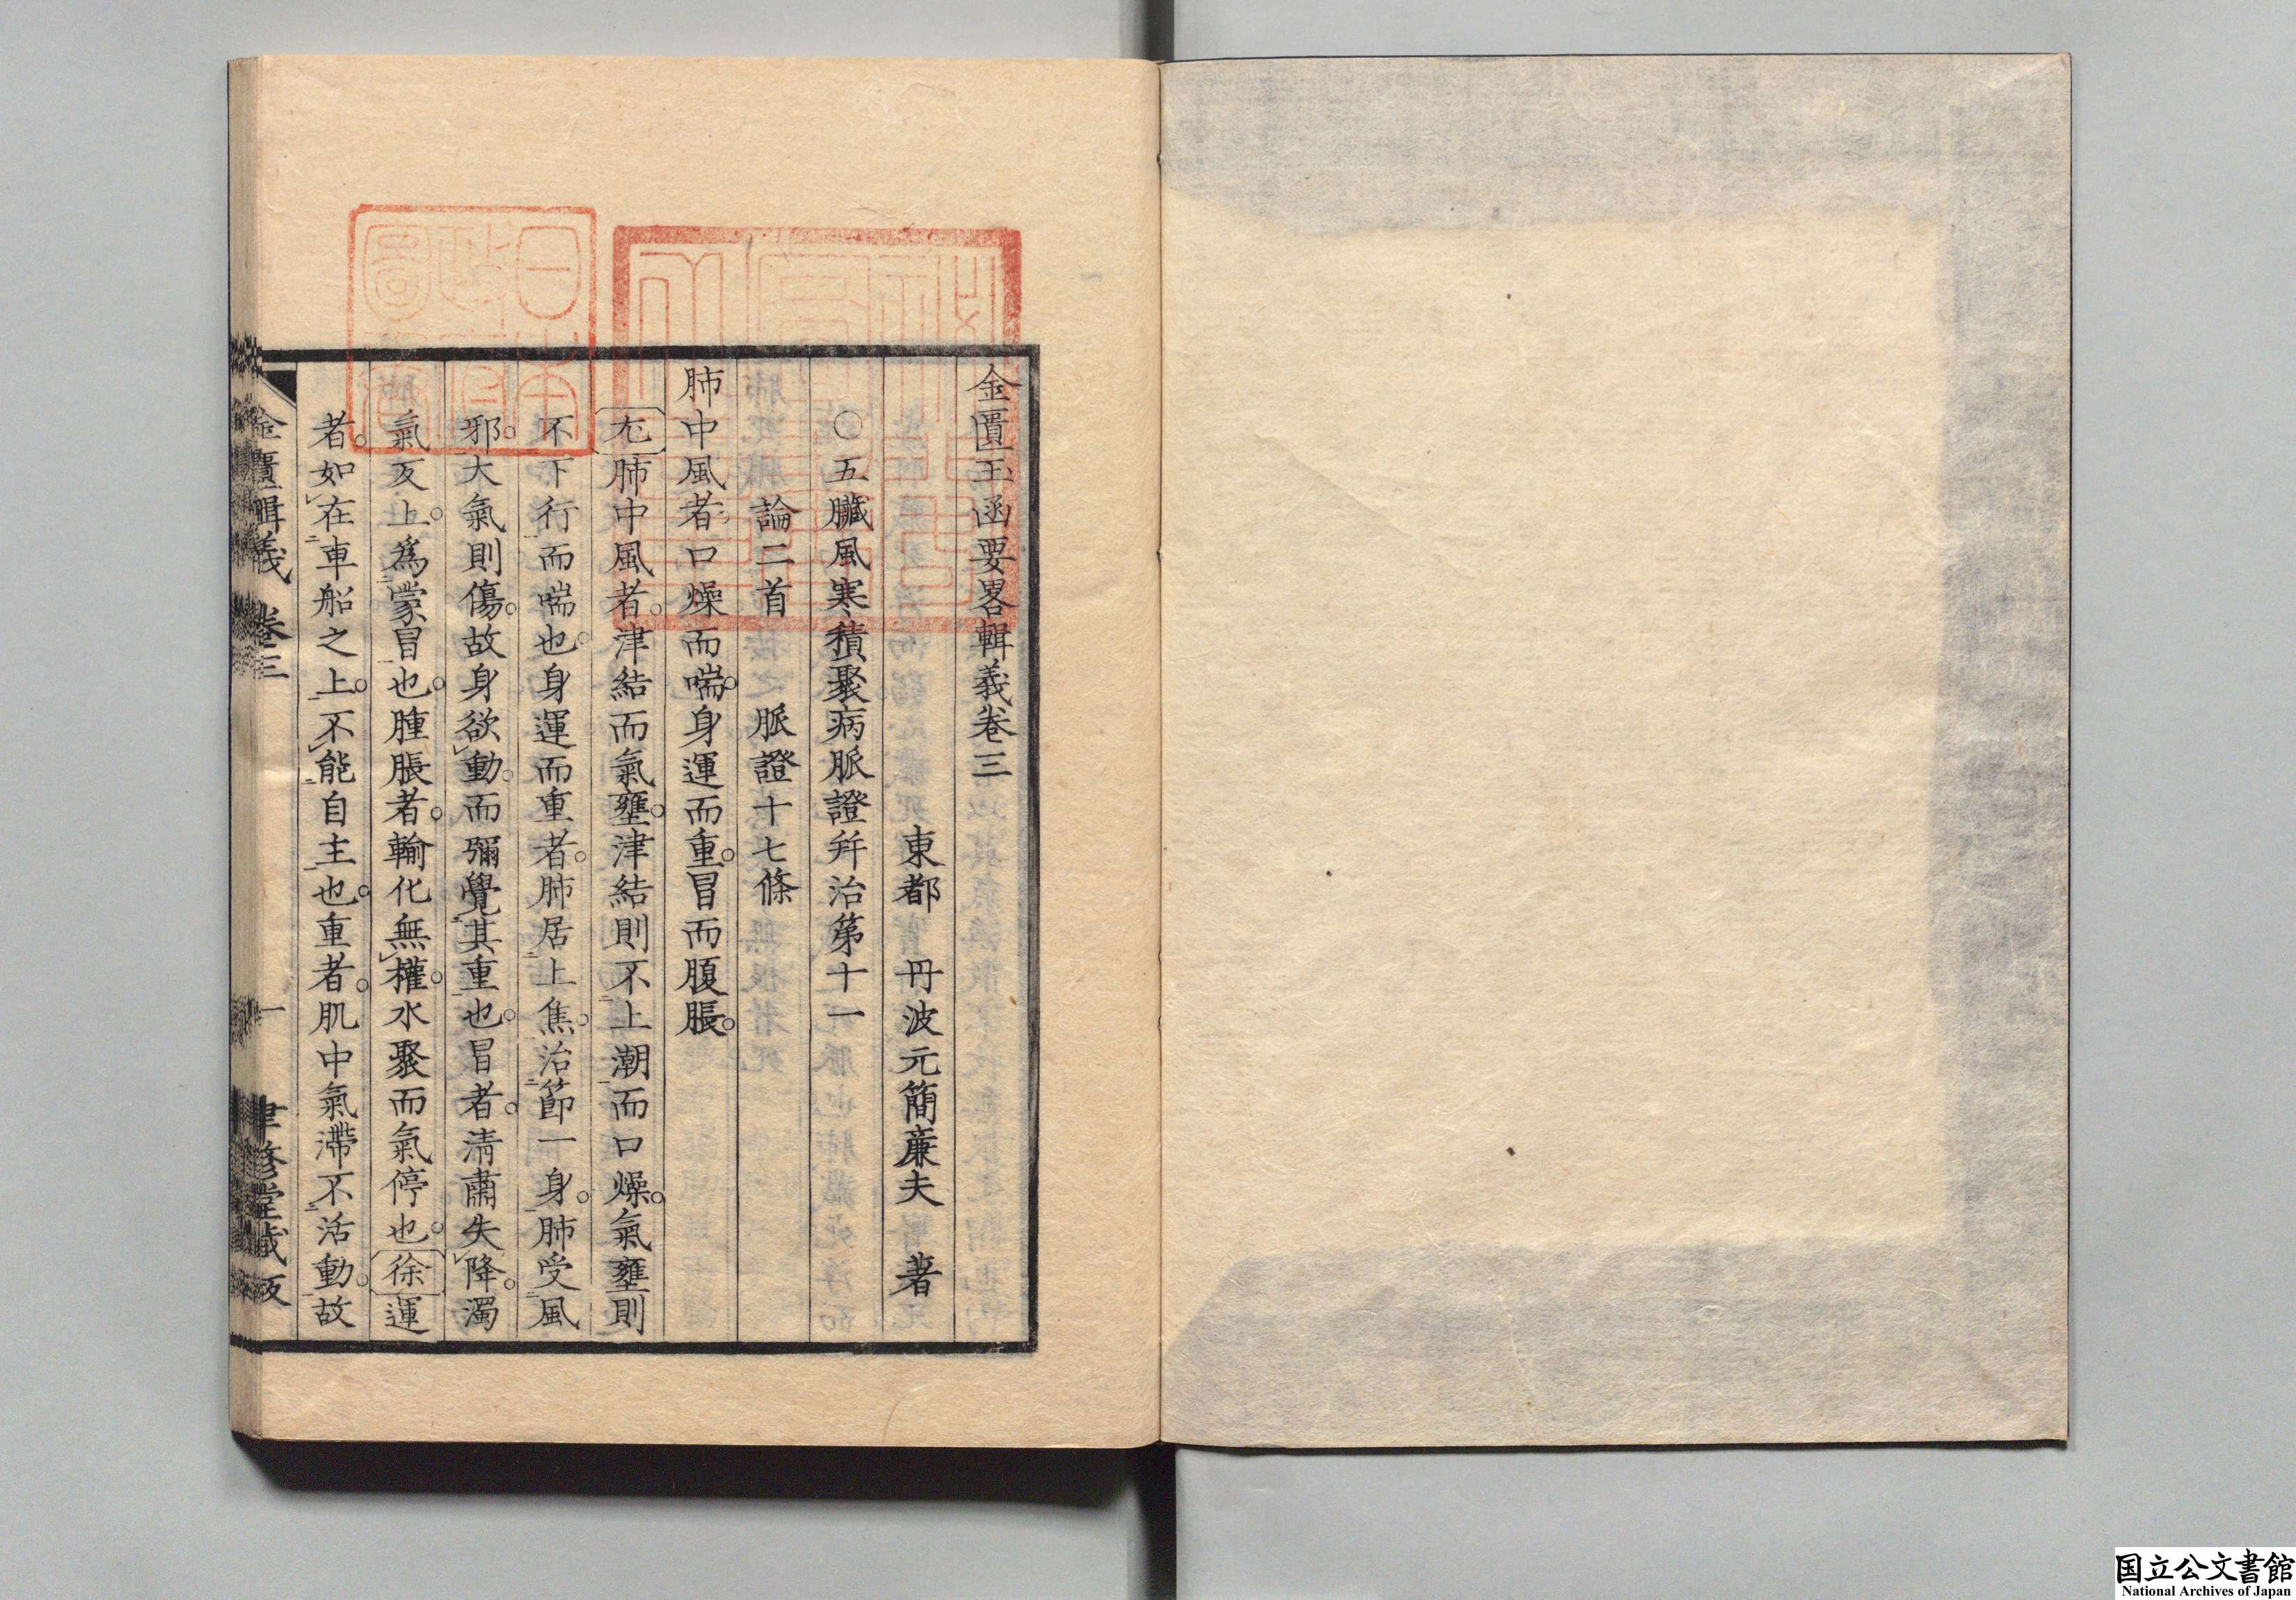 金匱玉函要畧輯義卷三
東都 丹波元簡廉夫 著
○五臟風寒積聚病脈證并治第十一
論二首 脈證十七條
肺中風者口燥而喘。身運而重。冒而腹脹。
尤肺中風者。津結而氣壅。津結則不上潮而口燥。氣壅則
不下行而喘也。身運而重者。肺居上焦。治節一身。肺受風
邪。大氣則傷。故身欲動。而彌覺其重也。冒者。清肅失降。濁
氣反上。爲蒙冒也。腫脹者。輸化無權。水聚而氣停也。徐運
者。如在車船之上。不能自主也。重者。肌中氣滯不活動。故
金匱輯義 卷三 一 聿修堂藏版
日本政府圖書
国立公文書館
National Archives of Japan